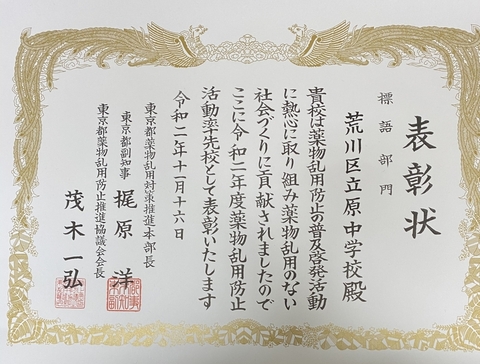 表彰状
標語部門
荒川区立原中学校殿
貴校は薬物乱用防止の普及啓発活動
に熱心に取り組み薬物乱用のない
社会づくりに貢献されましたので
ここに令和二年度薬物乱用防止
活動率先校として表彰いたします
令和二年十一月十六日
東京都薬物乱用対策推進本部長
東京都副知事 梶原洋
東京都薬物乱用防止推進協議会会長
茂木一弘